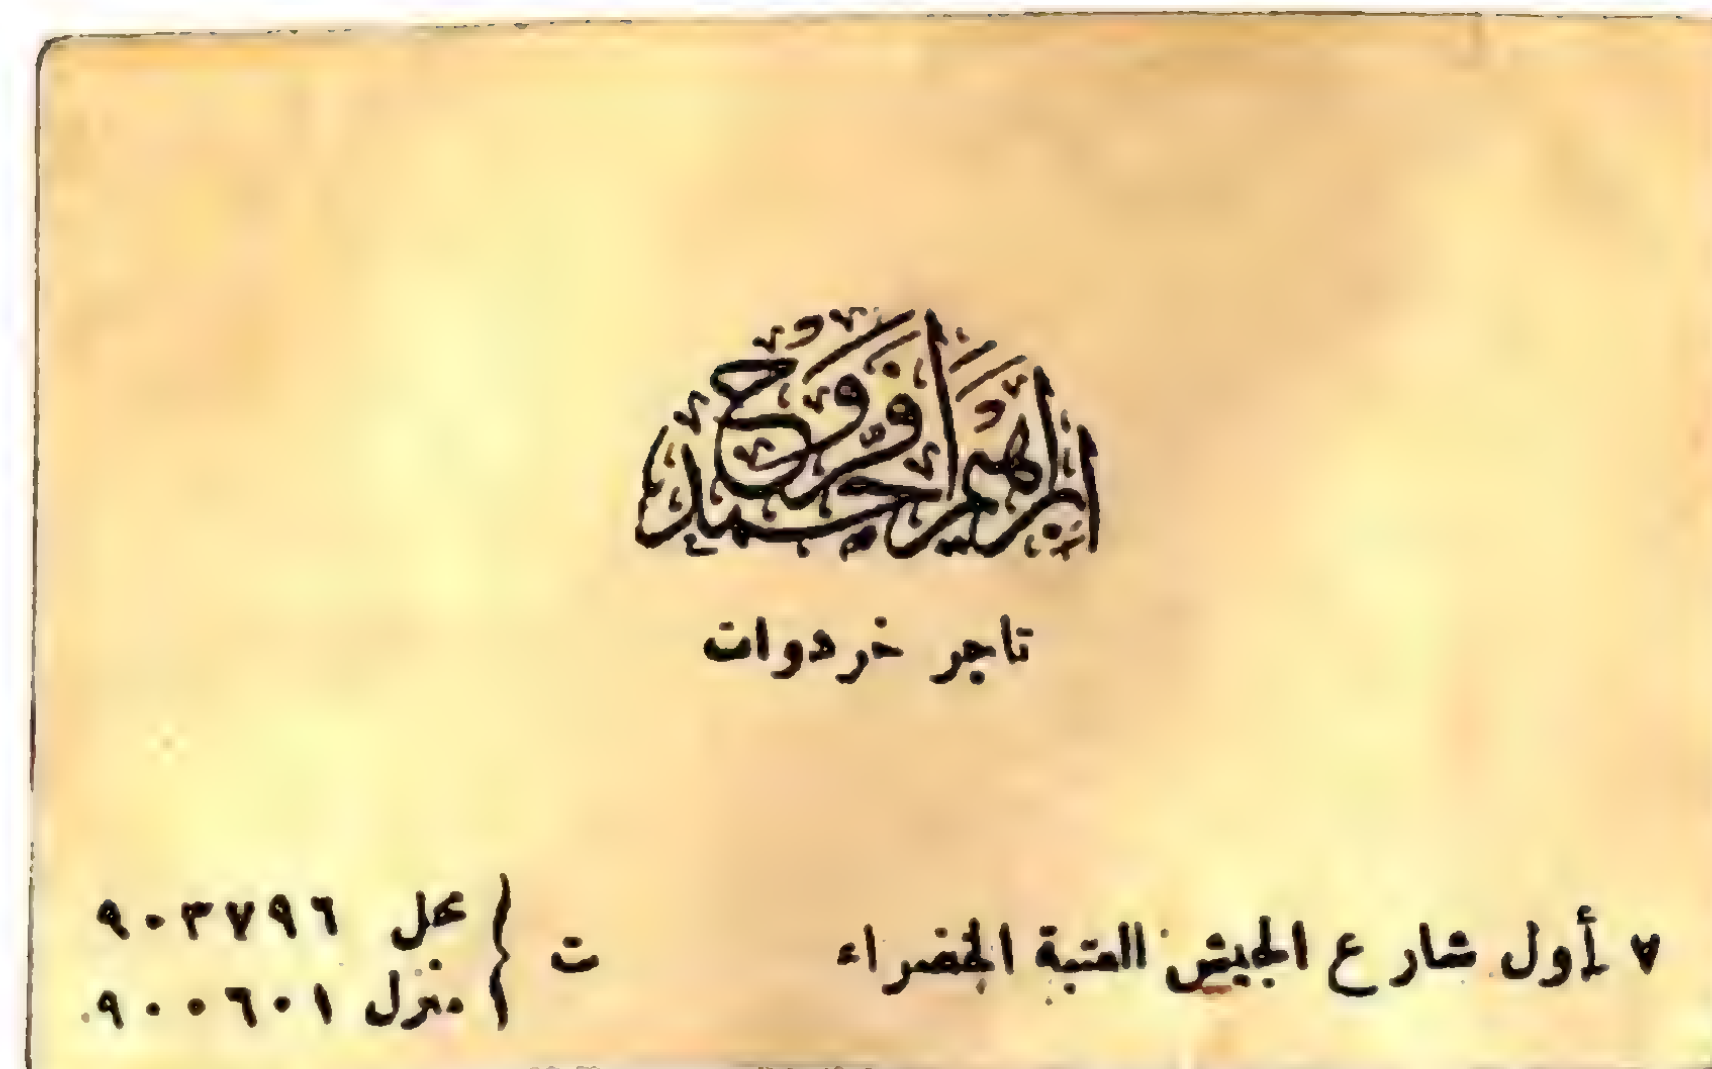 ابراهيم احمد
تاجر خردوات
٧ أول شارع الجيش العتبة الخضراء
ت
محل ٩٠٣٧٩٦
منزل ٩٠٠٦٠١